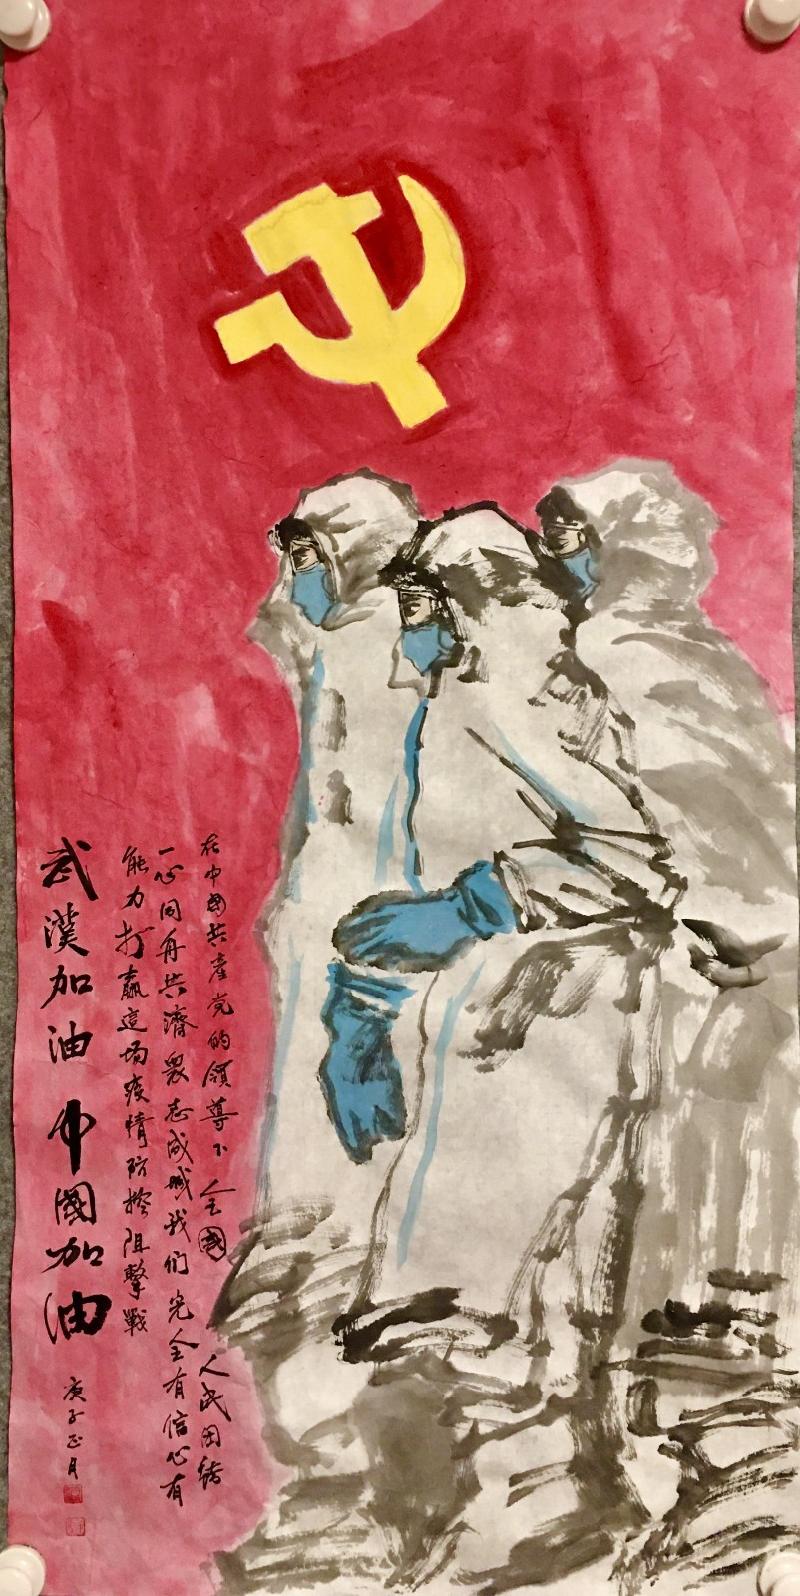 在中国共產党的領導下全國人民团结
一心同舟共濟衆志成城我们完全有信心有
能力打赢這场疫情防控阻擊戰
武漢加油中國加油
庚子正月